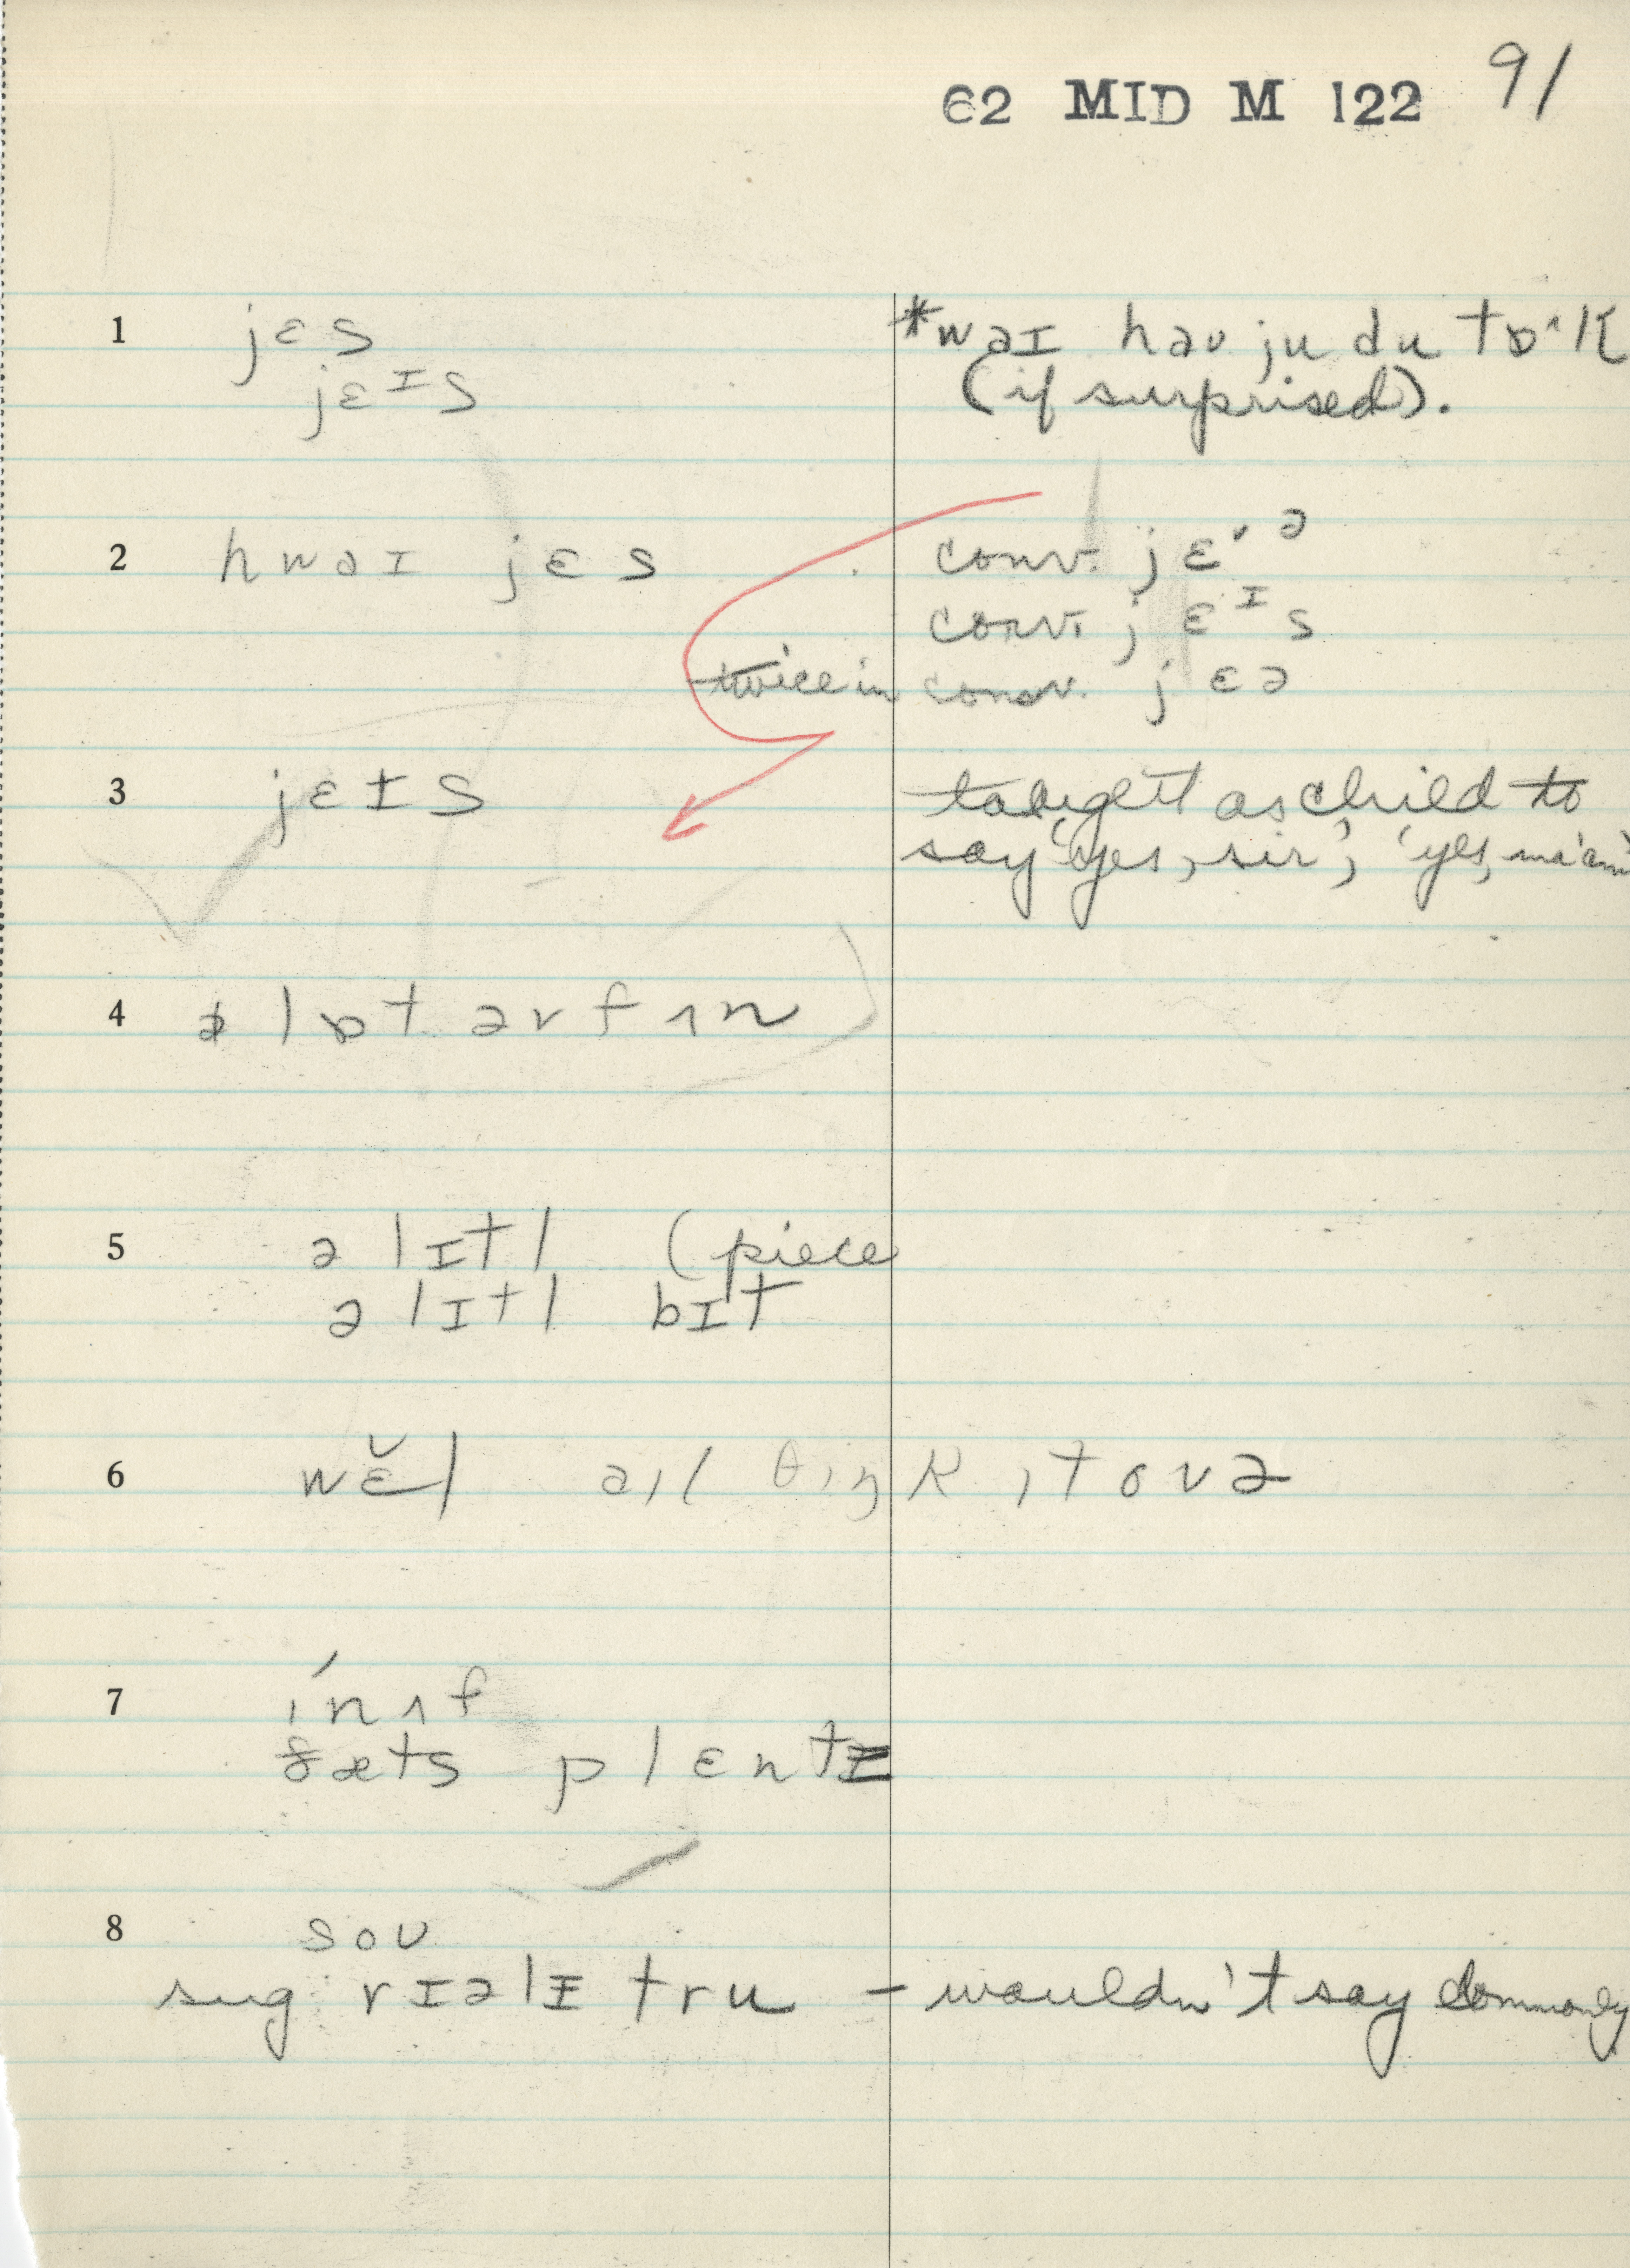 62 MID M 122 91
1 jɛs
jɛɪs
*waɪ haʊ ju du tɒˑk
(if surprised).
2 hwaɪ jɛs
conv. jɛˑə
conv. jɛɪs
twice in conv. jɛə
3 jɛɪs
taught as child to
say 'yes, sir', 'yes, ma'am'
4 ə lɒt əv fʌn
5 ə lɪtl (piece
ə lɪtl bɪt
6 wɛ̆l aɪl θɪŋk ɪt ovə
7 ínʌf
ðæts plɛntɪ
8 soʊ
sug: rɪəlɪ tru – wouldn't say commonly